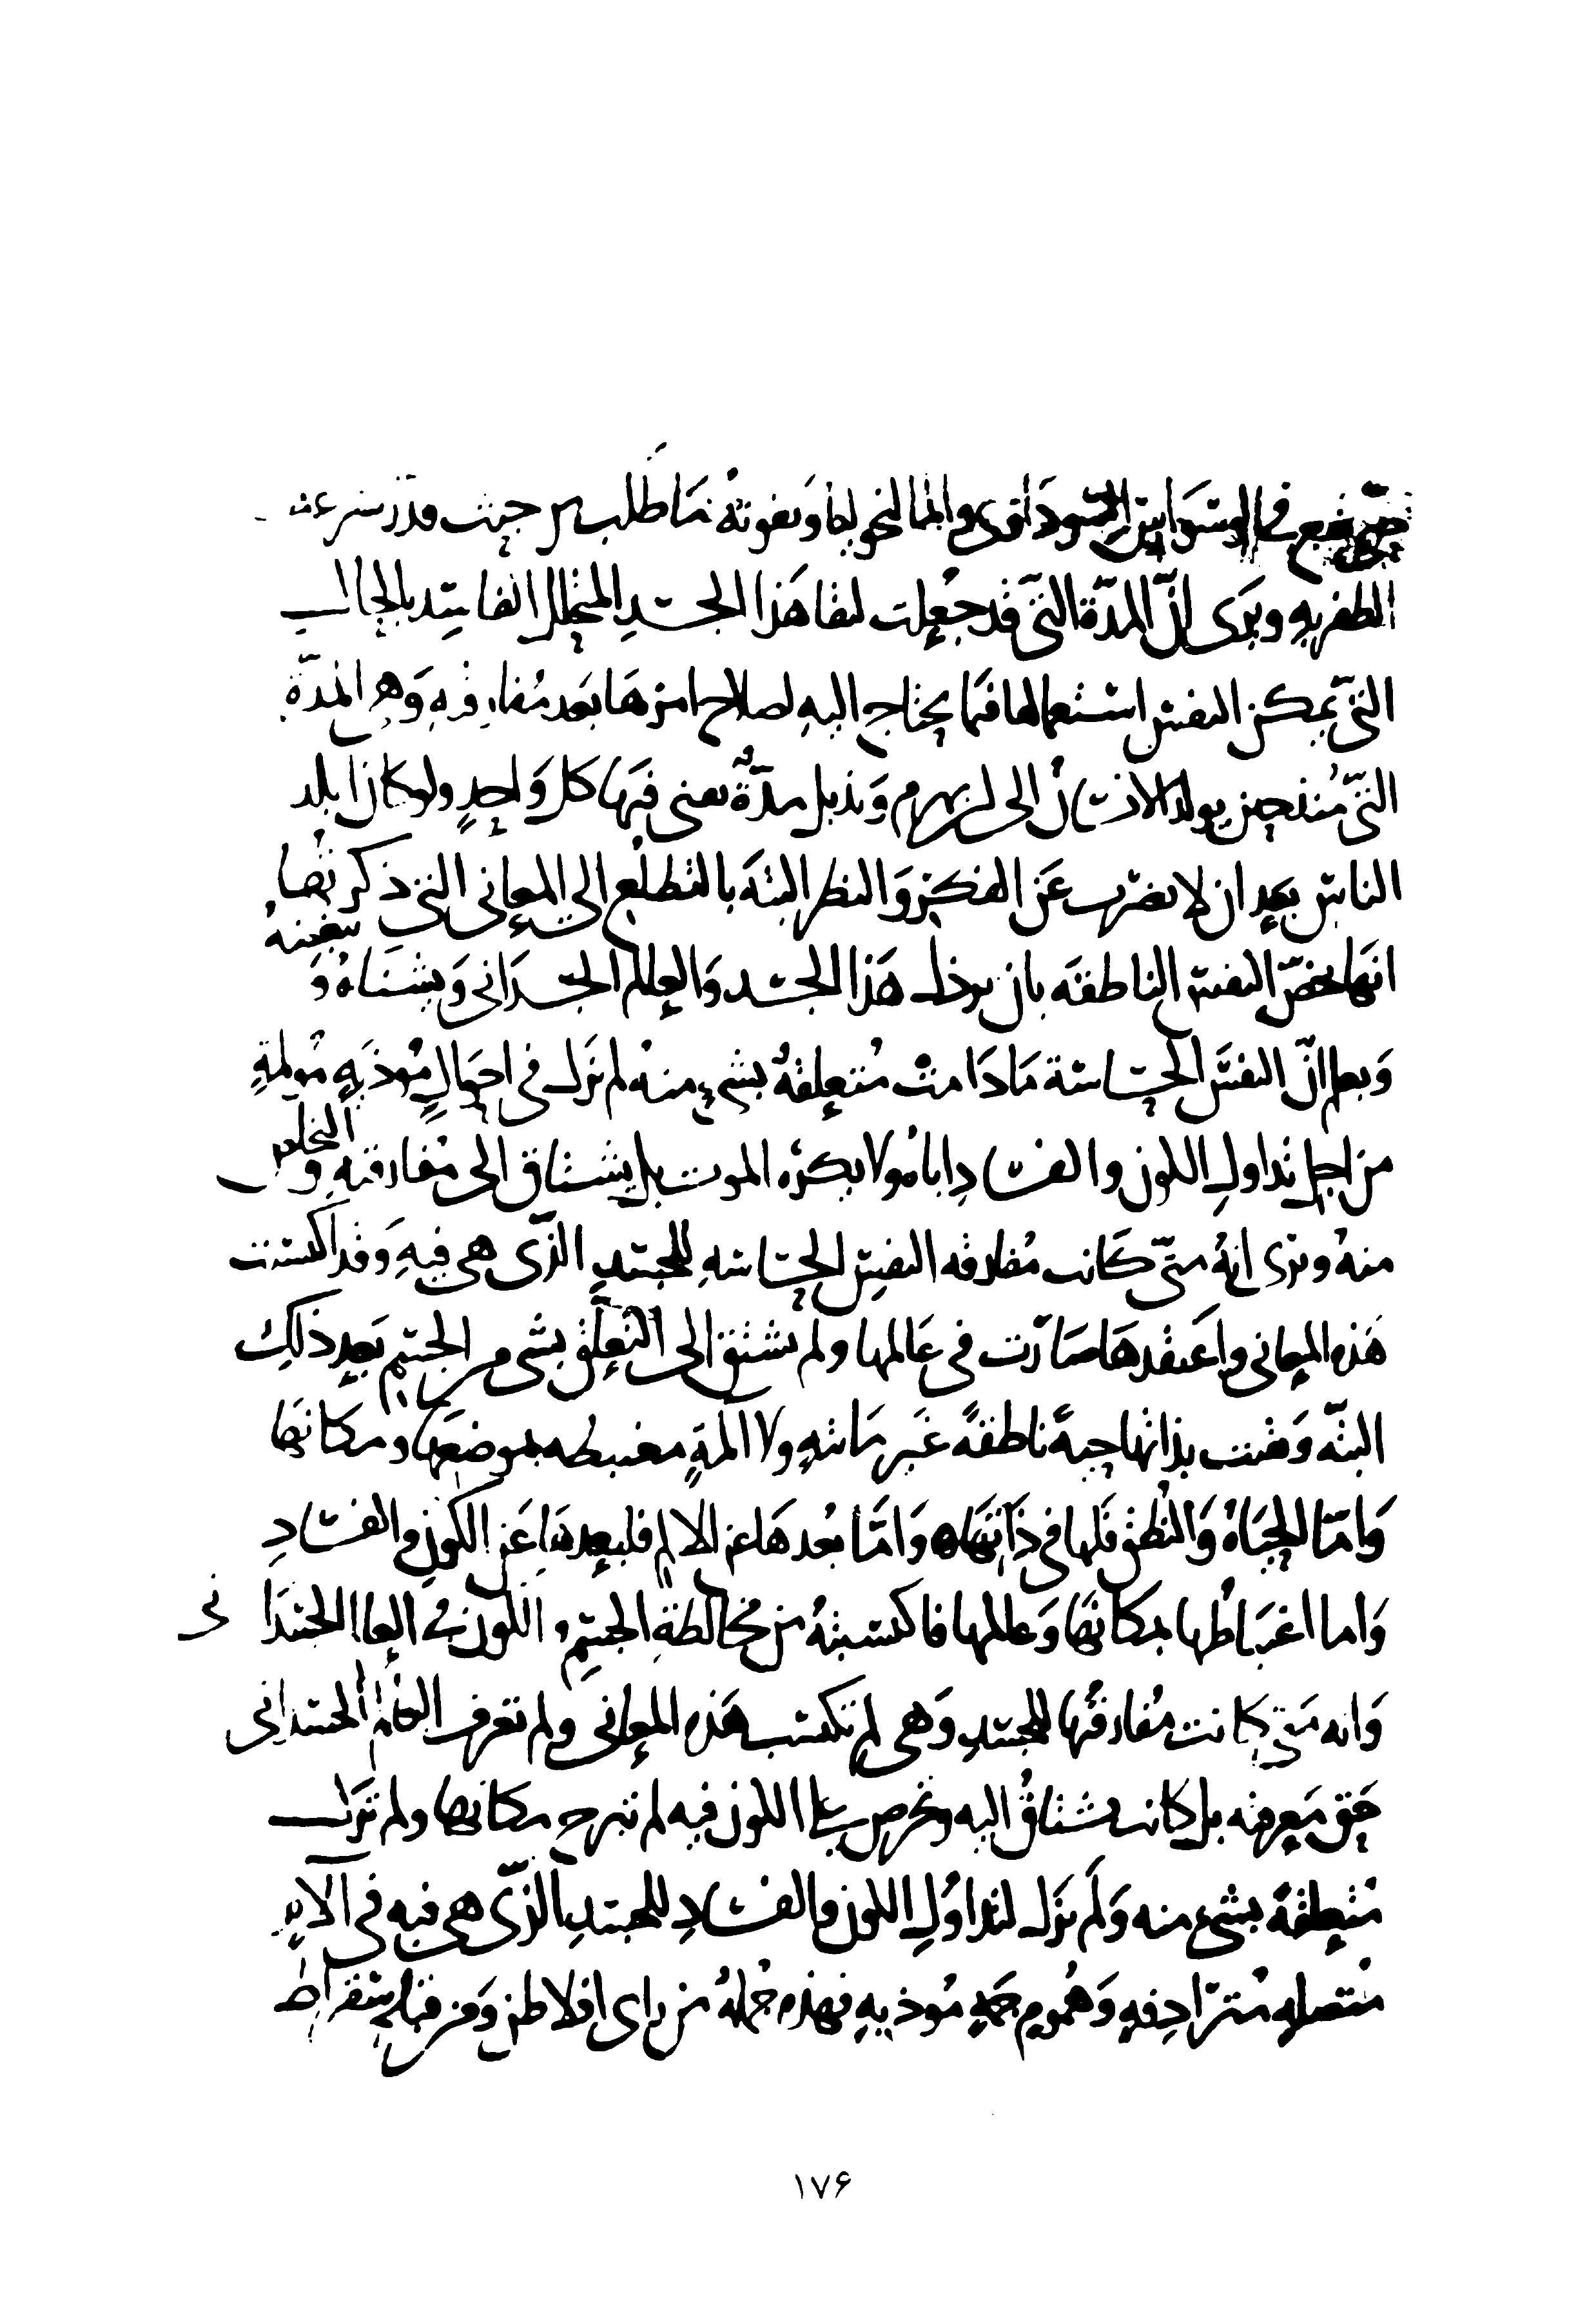 حتى يقع في الوسواس السوداوي والمالنخوليا ويفوته ما طلب من حيث قدر سرعة
الظفر به ويرى انّ المدّة التي قد جعلت لبقا هذا الجسدِ المتحلل الفاسِد بالحال
التي يمكن النفس استعمالها فيما يحتاج اليهِ لصلاح امرها بعد مُفارقتهِ وَهي المدّة
التيّ مُنذ حين يولد الانسانُ الى ان يهرم وَيذبل مدّةٌ يفى فيها كل وَاحدٍ ولو كان ابلد
الناس بعد ان لا يضرب عَن الفكر وَالنظر البتة بالتطلع الى المعاني التي ذكرنا
انها تخصّ النفس الناطقة بان يرذل هَذا الجسد وَالعالم الجسدَاني وَيشناهُ وَ يبغضهُ
وَيعلم انّ النفسَ الحساسة مَادَامتْ مُتعلقةً بشيءٍ منهُ لم تزل في احوالٍ مُوذيهٍ مُولمةٍ
من اجل تداولِ الكون والفسادِ اياهُ ولا يكرَه الموت بل يشتاق الى مفارقتهِ و التخلص
منهُ ويرى انهُ متىّ كانت مُفارقة النفسِ الحساسهِ للجسدِ الذّى هي فيهِ وَقد اكتسبت
هَذه المعاني واعتقدهَا صَارت في عَالمها ولم تشتق الى التعلّق بشى من الجسم بَعد ذلك
البتّه وَبقيت بذاتها حيةً ناطقةً غَير مَائتهٍ ولا آلمةٍ مغتبطه بموضعها ومكانها
وَامّا الحيَاةُ وَالنُطق فلها في ذَاتهَا ه وَامَّا بُعدهَا عن الالم فلبعدهَا عَن الكونِ والفسَادِ
وَاما اغتبَاطُها بمكانهَا وَعالمها فاكتسبتهُ من مخالطةِ الجسمِ والكون في العالم الجسدَانى
وَانه مَتى كانت مُفارقتُها للجسدِ وَهي لم تكتسب هَذه المعاني ولم تعرف العالمَ الجسداني
حَق مَعرفته بل كانت تشتاقُ اليه وتحرص على الكون فيه لم تبرح مكانها ولم تزَل
مُتعلقةً بشيءٍ منه وَلَم تزَل لتداوُلِ الكون والفسَادِ للجسدِ الذّى هي فيه في آلامٍ
مُتصلهٍ مُترَادِفهٍ وَهُمومٍ جمّهٍ مُوذيهٍ فهذه جُملةٌ من راى افلاطن وَمن قبلهِ سقراط
١٧۶